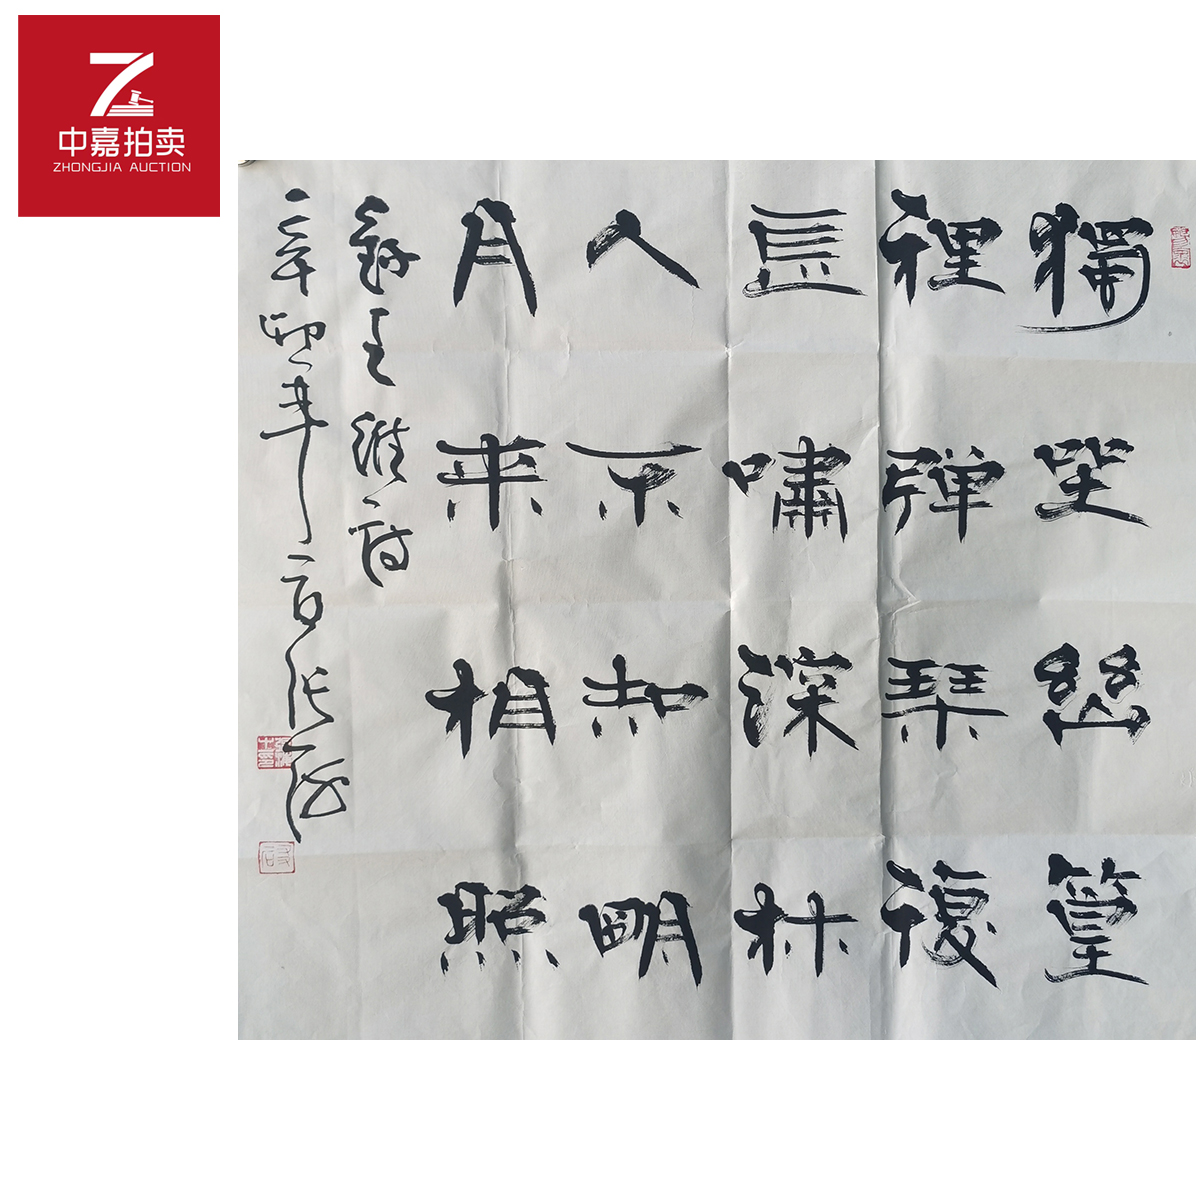 中嘉拍卖
ZHONGJIA AUCTION
獨坐幽篁
裡弹琴復
長嘯深林
人不知明
月来相照
録王維詩
辛卯年